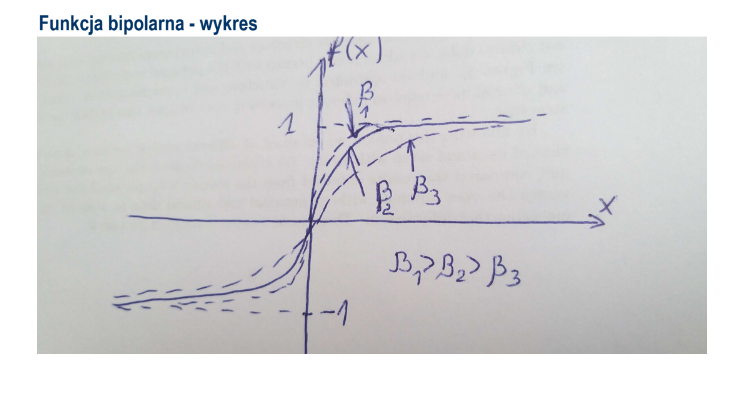 Funkcja bipolarna - wykres
f(x)
β1
1
β2
β3
x
β1>β2>β3
-1